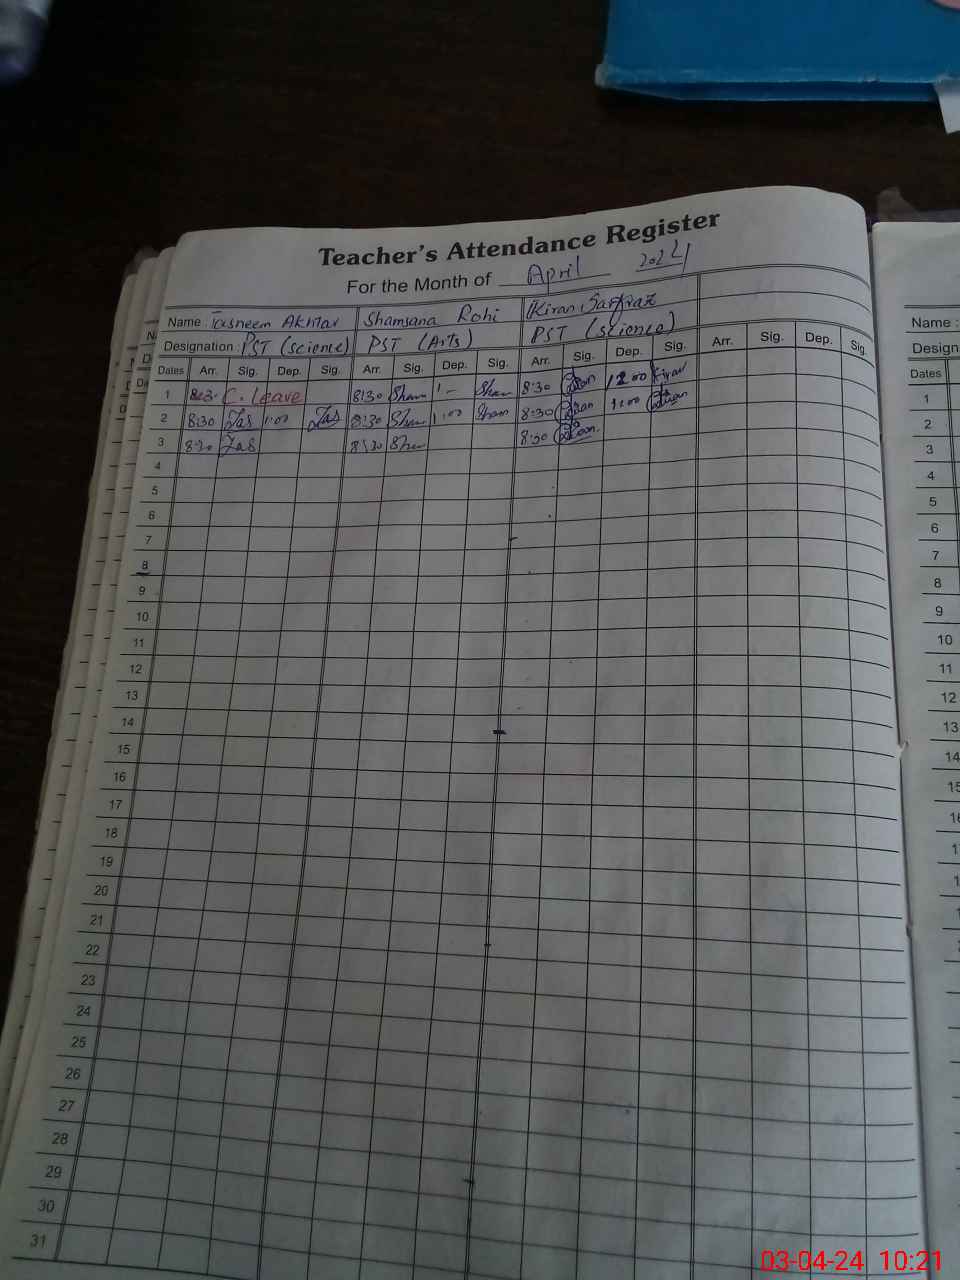 Teacher's Attendance Register
For the Month of April 2024
Name : Tasneem Akhtar Shamsana Rohi Kiran Sarfraz
Designation : PST (science) PST (Arts) PST (science)
Dates Arr. Sig. Dep. Sig. Arr. Sig. Dep. Sig. Arr. Sig. Dep. Sig. Arr. Sig. Dep. Sig.
1 8:3 C. Leave 8:30 Sham 1 - Sham 8:30 1200 Kiran
2 8:30 Tas 1:00 Tas 8:30 Sham 1:00 Sham 8:30 1:00
3 8:30 Tas 8:30 Sham 8:30
4
5
6
7
8
9
10
11
12
13
14
15
16
17
18
19
20
21
22
23
24
25
26
27
28
29
30
31
Name :
Design
Dates
1
2
3
4
5
6
7
8
9
10
11
12
13
14
15
03-04-24 10:21